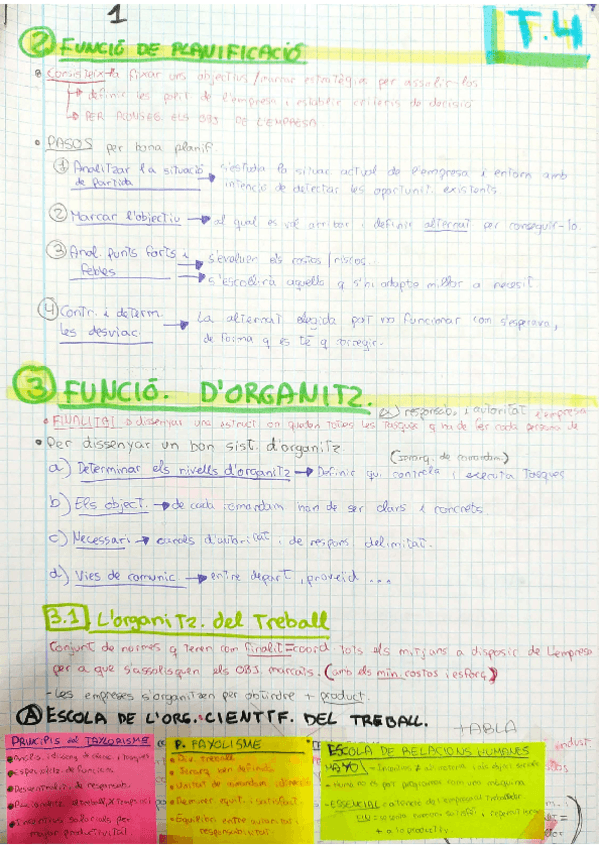 1
T.4
② FUNCIÓ DE PLANIFICACIÓ
Consisteix fixar uns objectius / marcar estratègia per assolir-los
definir les polít de l'empresa i establir criteris de decisió
PER ACONSEG. ELS OBJ DE L'EMPRESA
• PASOS per bona planif
① Analitzar la situació → s'estudia la situac actual de l'empresa i entorn amb
de partida intenció de detectar les oportunit. existents
② Marcar l'objectiu → al qual es vol arribar i definir alternat per conseguir-lo.
③ Anal. punts forts i → s'evaluen els costos / riscos.
febles → s'escollirà aquella q s'hi adapta millor a necesit
④ Contr. i determ. → La alternat elegida pot no funcionar com s'esperava,
les desviac. de forma q es té q corregir.
③ FUNCIÓ. D'ORGANITZ.
responsab. i autoritat
• FINALITAT dissenyar una estruct on queden totes les tasques q ha de fer cada persona de l'empresa
• Per dissenyar un bon sist. d'organitz
(Jerarq. de comandam.)
a) Determinar els nivells d'organitz → Definir qui controla i executa tasques
b) Els object. → de cada comandam han de ser clars i concrets.
c) Necessari → canals d'autoritat i de respons. delimitat.
d) Vies de comunic → entre depart, proveid ...
3.1 L'organitz. del Treball
Conjunt de normes q tenen com finalit = coord tots els mitjans a disposic de l'empresa
per a que s'assolisquen els OBJ marcats. (amb els min. costos i esforç)
- Les empreses s'organitzen per obtindre + product.
Ⓐ ESCOLA DE L'ORG. CIENTÍF. DEL TREBALL.
TABLA
PRINCIPIS del TAYLORISME
Especialitz. de funcions
Incentius salarials per
major productivitat.
P. FAYOLISME
Div. treball
Jerarq. ben definida
Unitat de comandam i direcció
Equilibri entre autoritat i
responsabilitat.
ESCOLA DE RELACIONS HUMANES
MAYO
Humà no és pot programar com una màquina
+ alta productiv.
indust.